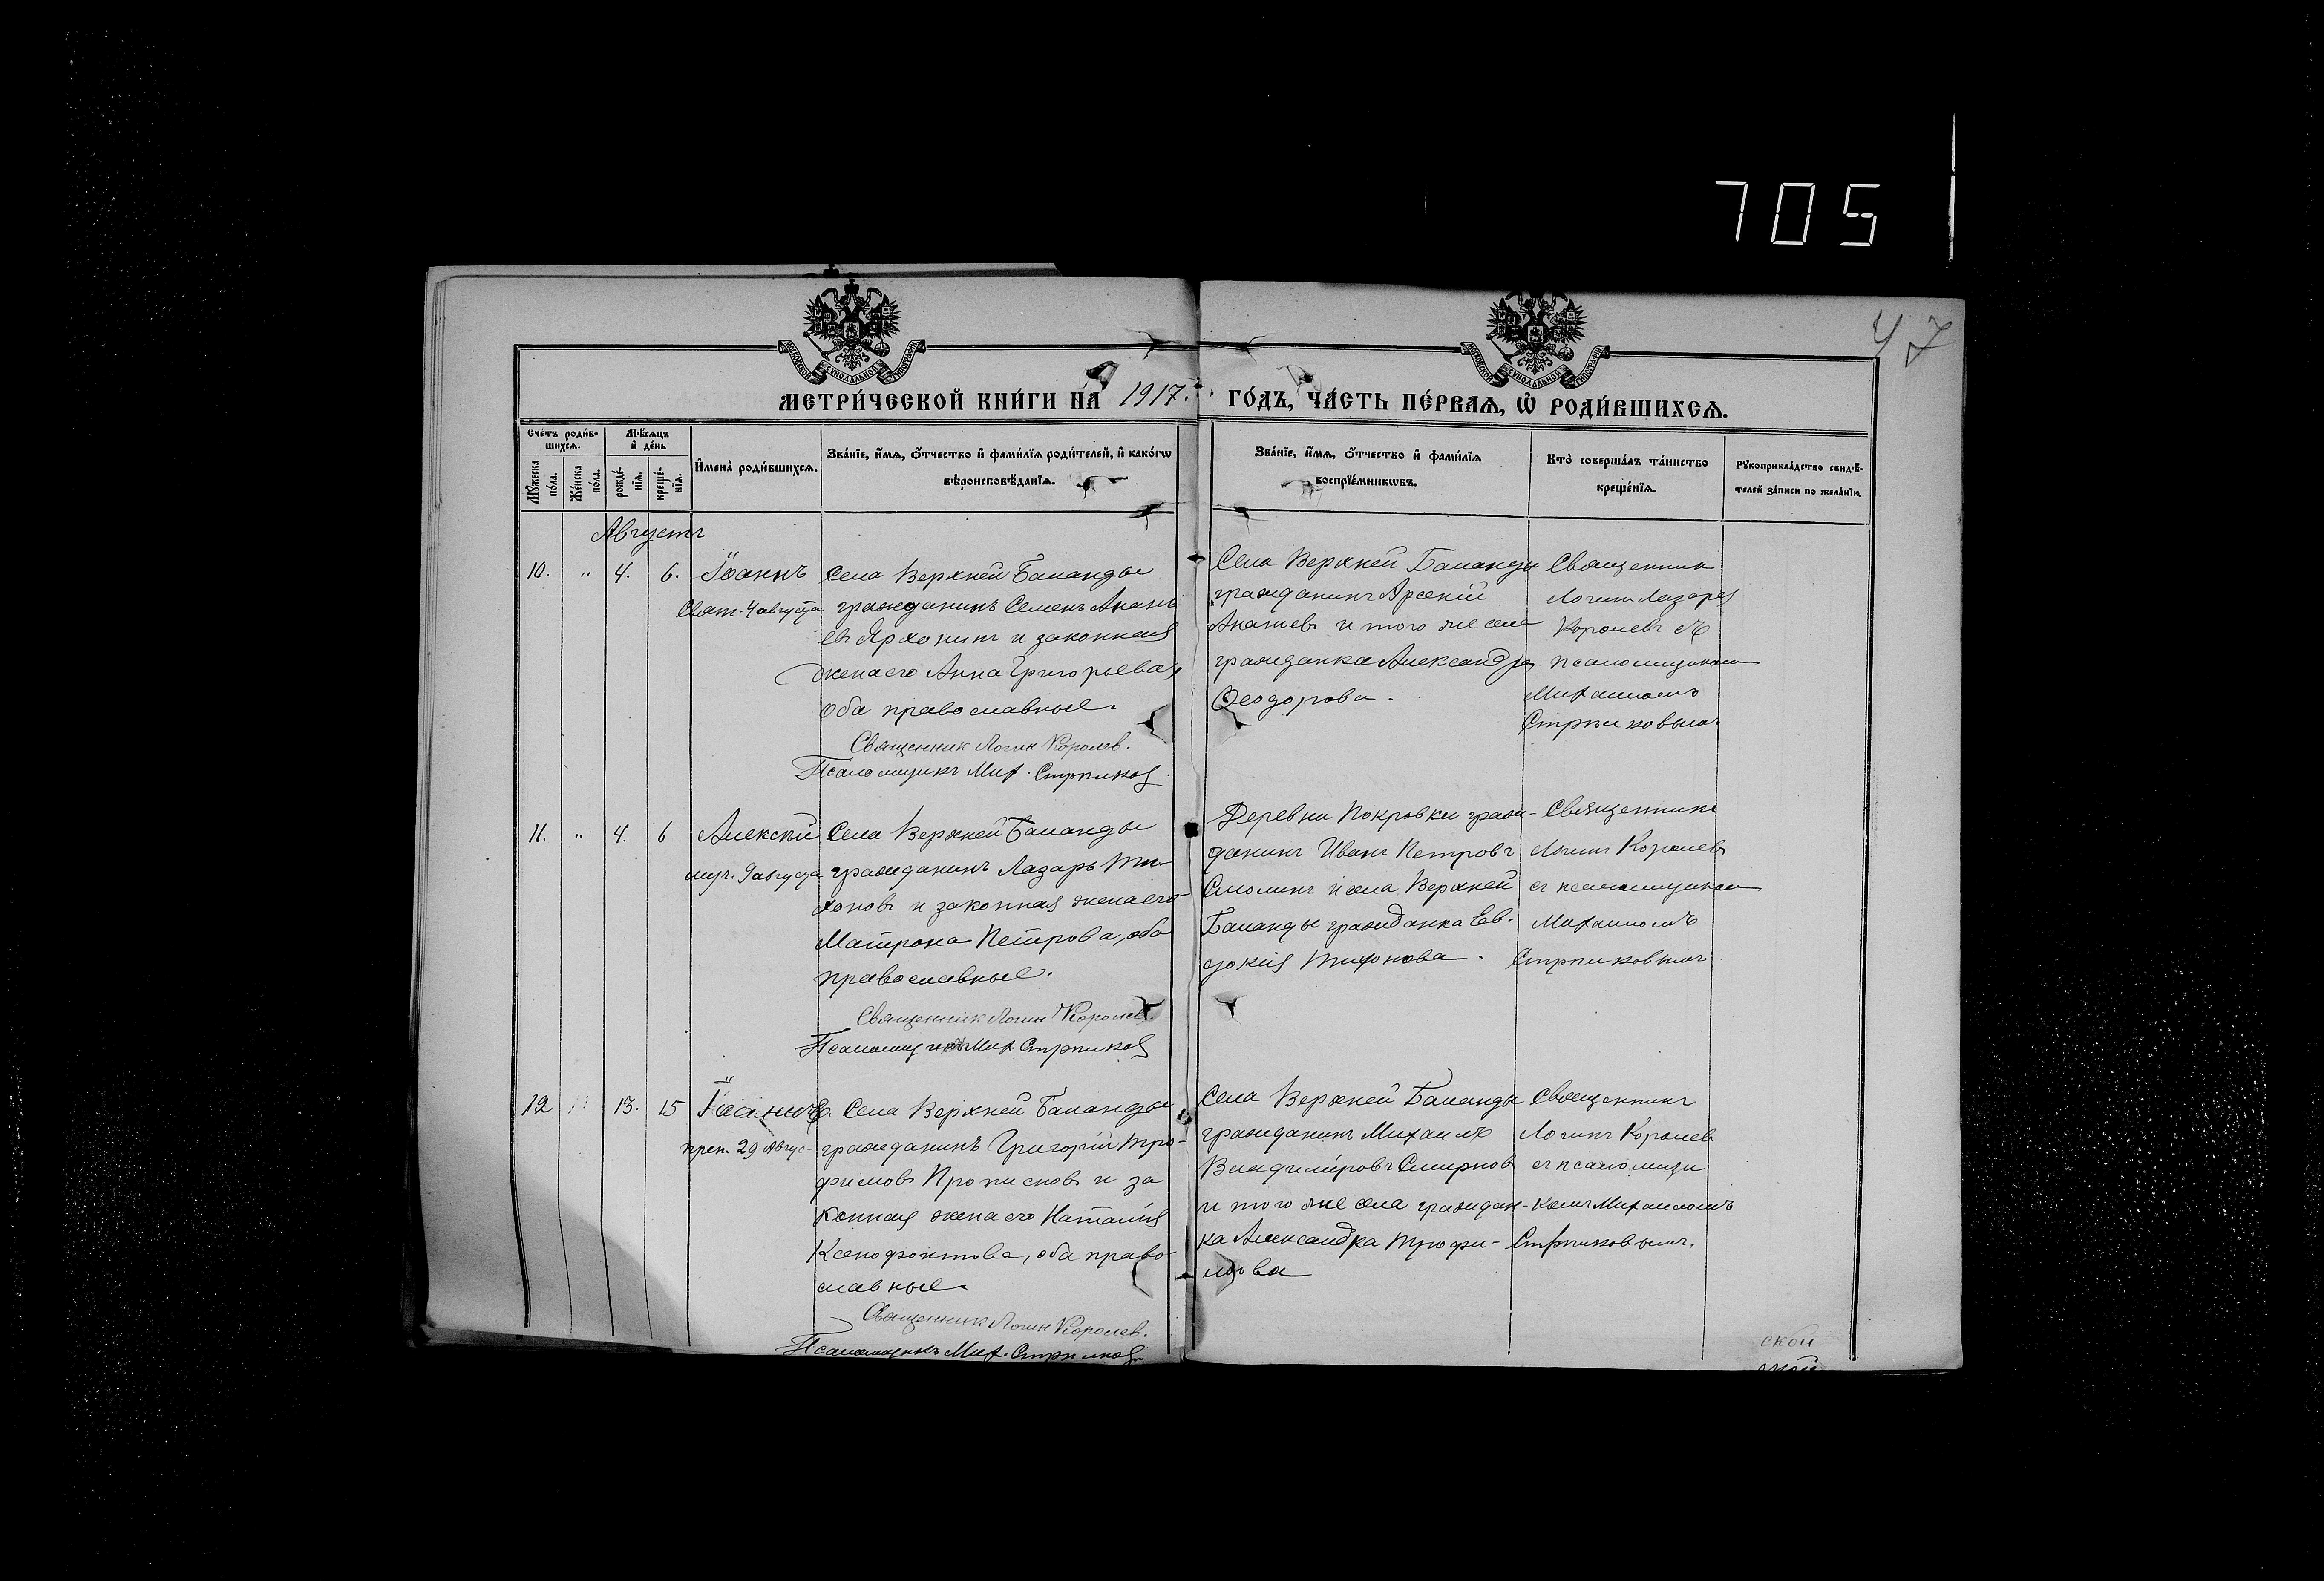 705
47
МОСКОВСКОЙ СѴНОДАЛЬНОЙ ТИПОГРАФІИ
МОСКОВСКОЙ СѴНОДАЛЬНОЙ ТИПОГРАФІИ
МЕТРИ́ЧЕСКОЙ КНИ́ГИ НА 1917. ГО́ДЪ, ЧА́СТЬ ПЕ́РВАѦ, Ѡ҆ РОДИ́ВШИХСѦ.
Сче́тъ роди́в-
шихсѧ.
Мꙋ́жеска
по́ла.
Же́нска
по́ла.
Мѣ́сѧцъ
и҆ де́нь
рожде́-
нїѧ.
креще́-
нїѧ.
И҆мена̀ роди́вшихсѧ.
Зва́нїе, и҆́мѧ, ѻ҆́тчество и҆ фами́лїѧ роди́телей, и҆ како́гѡ
вѣроисповѣ́данїѧ.
Зва́нїе, и҆́мѧ, ѻ҆́тчество и҆ фами́лїѧ
воспрїе́мникѡвъ.
Кто̀ соверша́лъ та́инство
креще́нїѧ.
Рꙋкоприкла́дство свидѣ́-
телей за́писи по жела́нїю.
Августъ
10. " 4. 6. Іоаннъ
4 августа
Села Верхней Баланды
гражданинъ Семенъ Анань
евъ и законная
жена его Анна Григорьева,
оба православные.
Священник Логин Королев.
Псаломщикъ Мих.
Села Верхней Баланды
гражданинъ Арсеній
Ананіевъ и того же села
гражданка Александра
Ѳеодорова.
Священник
Логинъ Лазарев
Королевъ съ
псаломщиком
Михаиломъ
11. " 4. 6 Алексѣй
муч. 9 августа
Села Верхней Баланды
гражданинъ Лазарь Ти-
хоновъ и законная жена его
Матрона Петрова, оба
православные.
Священник Логин Королев.
Псаломщикъ Мих.
Деревни Покровки граж-
данинъ Иванъ Петровъ
Смолинъ и села Верхней
Баланды гражданка Ев-
докія Тихонова.
Священникъ
Логинъ Королевъ
съ псаломщиком
Михаиломъ
12 " 13. 15 Іоаннъ
преп. 29 Авгус-
Села Верхней Баланды
гражданинъ Григорій Тро-
фимовъ и за
конная жена его Наталія
Ксенофонтова, оба право-
славные.
Священник Логин Королев.
Псаломщикъ Мих.
Села Верхней Баланды
гражданинъ Михаилъ
Владиміровъ Смирнов
и того же села граждан-
ка Александра Трофи-
мова
Священникъ
Логинъ Королев
съ псаломщи
комъ Михаиломъ
ской